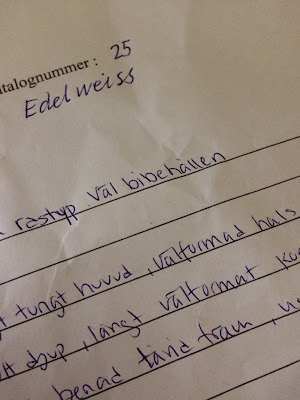 atalognummer : 25
Edelweiss
rastyp väl bibehållen
t tungt huvud, välformad hals
djup, långt välformat
benad tävid fram,